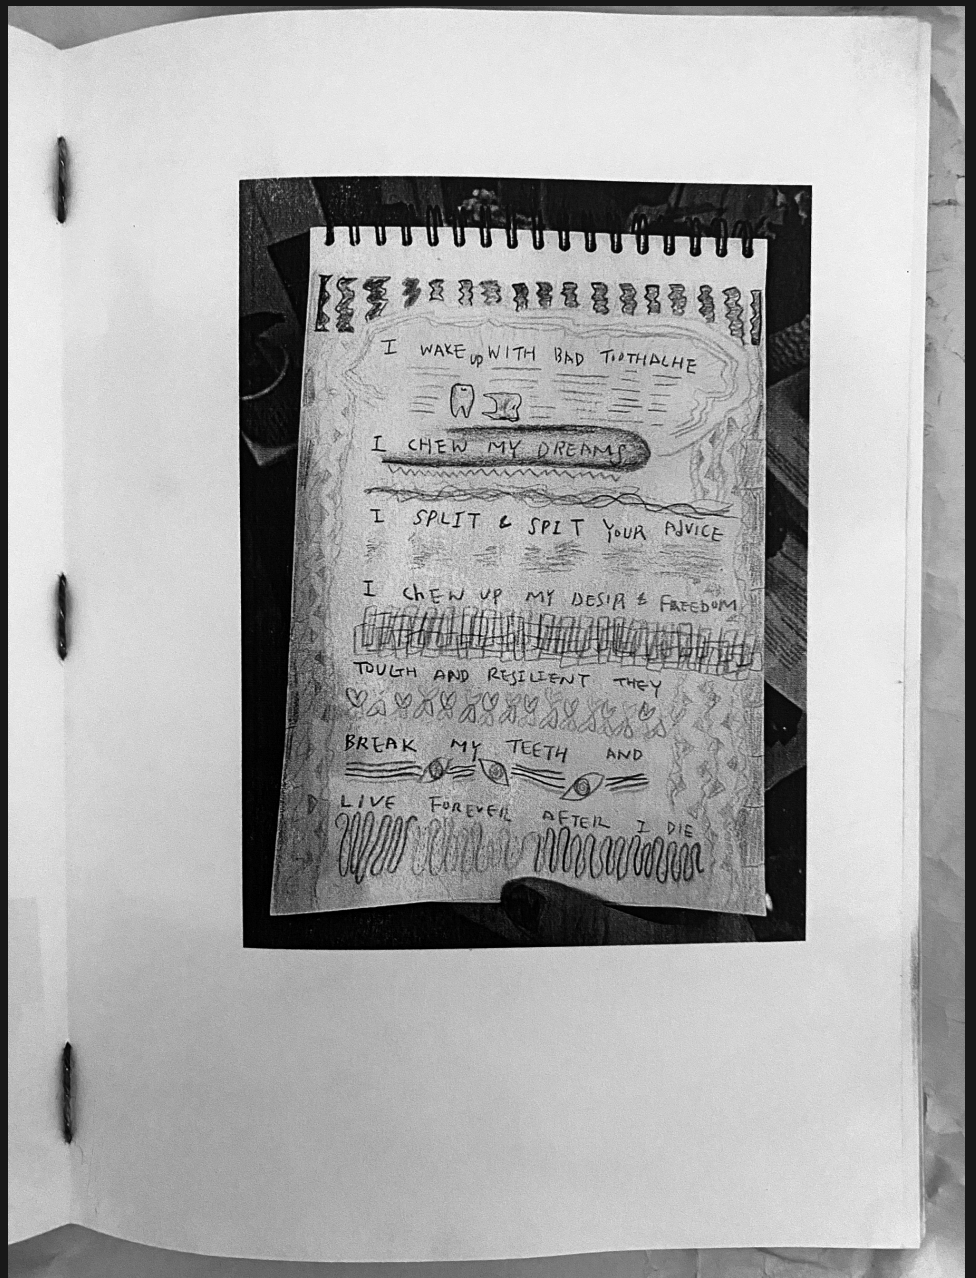 I WAKE UP WITH BAD TOOTHALHE
I CHEW MY DREAMS
I SPLIT & SPIT YOUR ADVICE
I CHEW UP MY DESIR & FREEDOM
TOUGH AND RESILIENT THEY
BREAK MY TEETH AND
LIVE FOREVER AFTER I DIE